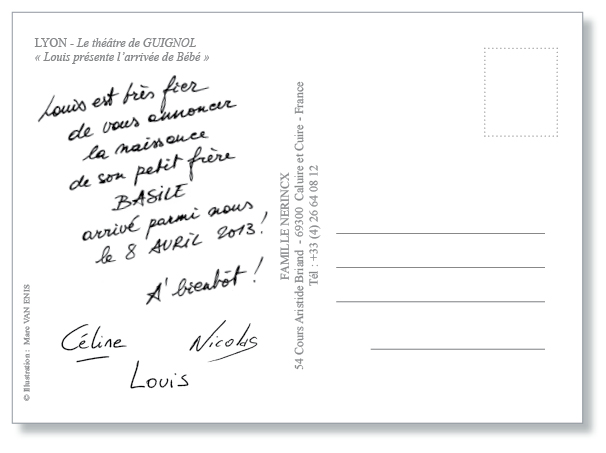 LYON - Le théâtre de GUIGNOL
« Louis présente l'arrivée de Bébé »
Louis est très fier
de vous annoncer
la naissance
de son petit frère
BASILE
arrivé parmi nous
le 8 AVRIL 2013 !
A' bientôt !
Céline
Nicolas
Louis
FAMILLE NERINCX
54 Cours Aristide Briand - 69300 Caluire et Cuire - France
Tél : +33 (4) 26 64 08 12
© Illustration : Marc VAN ENIS